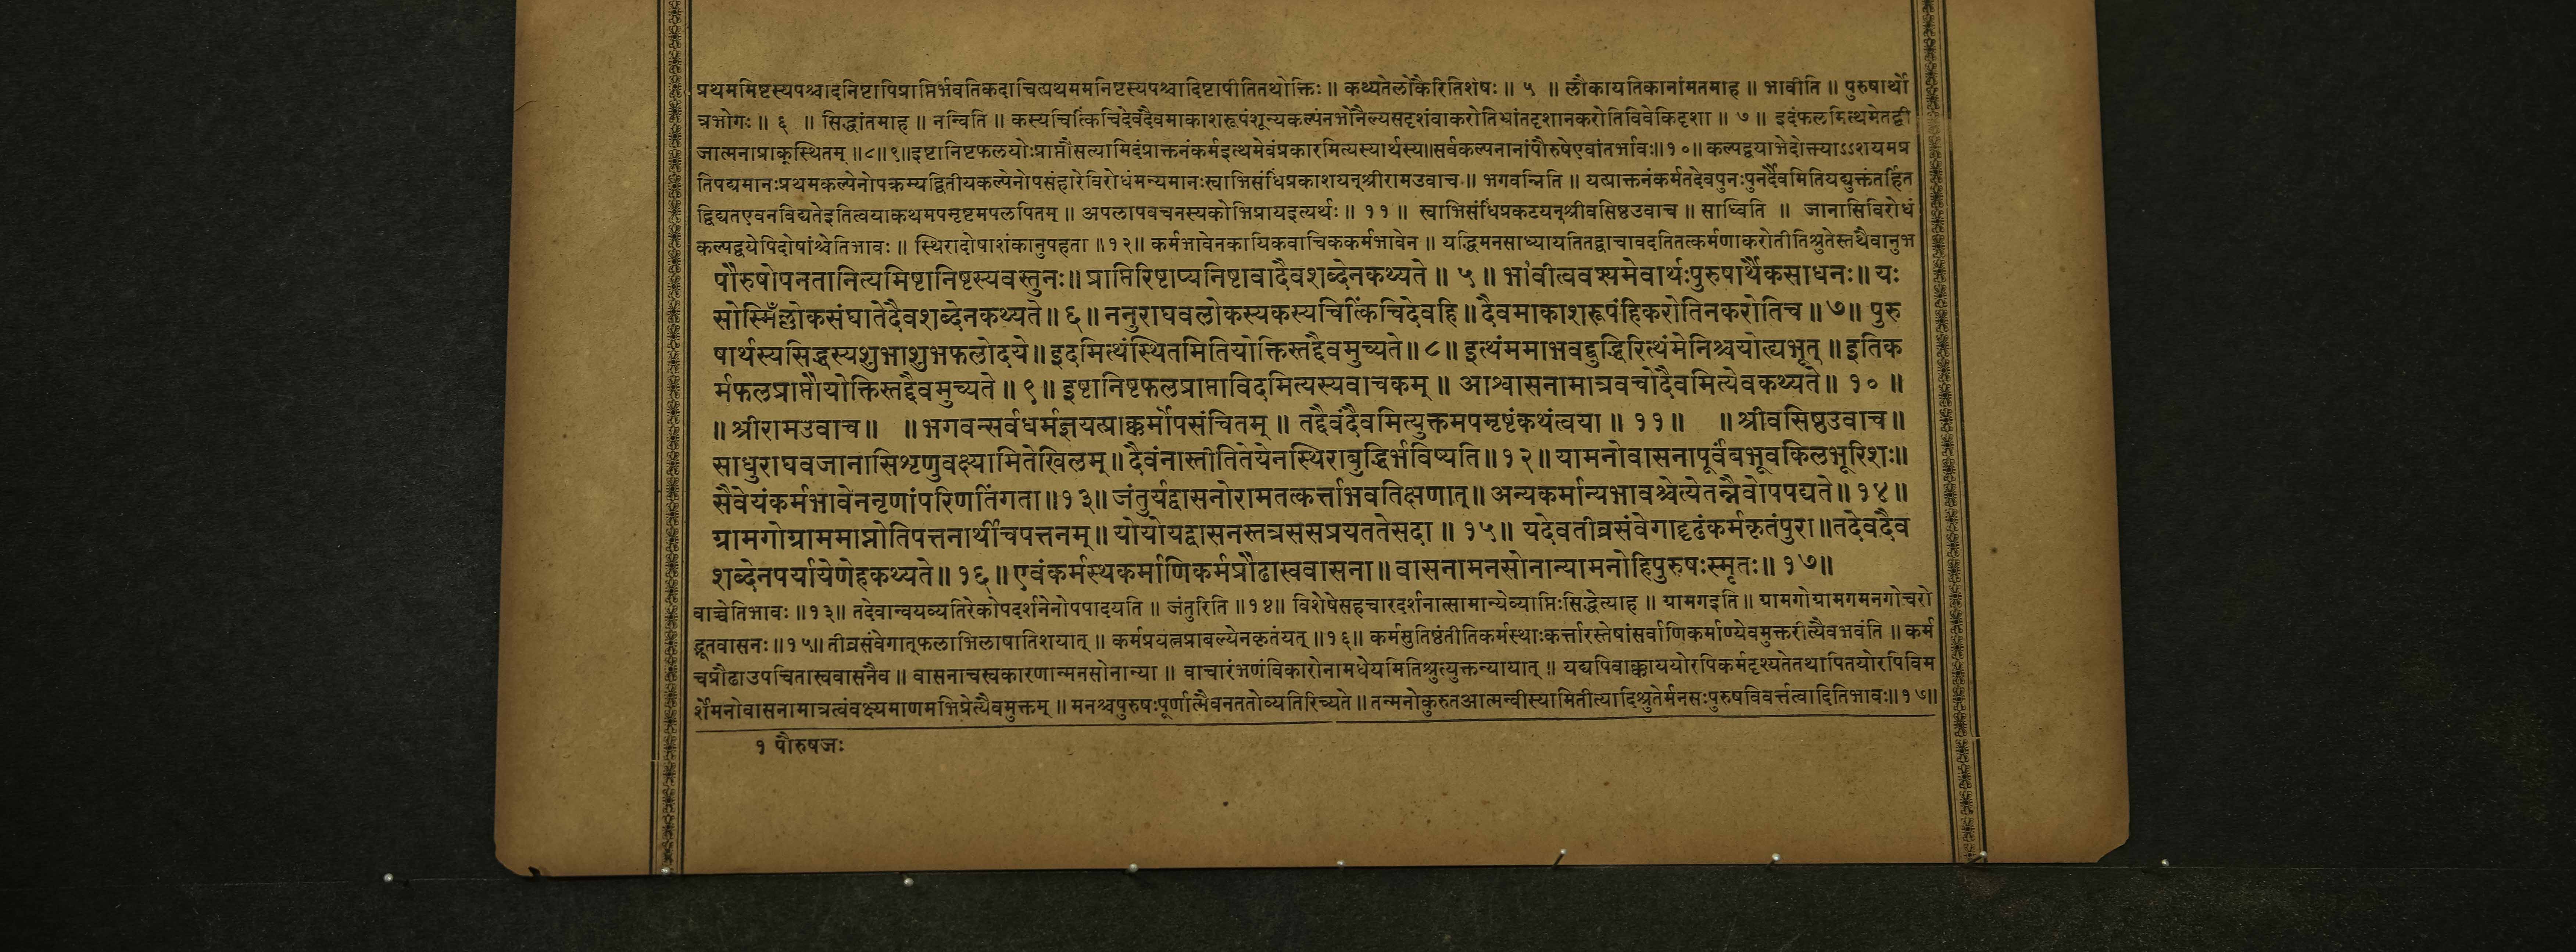 प्रथममिष्टस्यपश्चादनिष्टापिप्राप्तिर्भवतिकदाचित्प्रथममनिष्टस्यपश्चादिष्टापीतितथोक्तिः ॥ कथ्यतेलोकैरितिशेषः ॥ ५ ॥ लौकायतिकानांमतमाह ॥ भावीति ॥ पुरुषार्थो
त्रभोगः ॥ ६ ॥ सिद्धांतमाह ॥ नन्विति ॥ कस्यचित्किंचिदेवदैवमाकाशरूपंशून्यकल्पंनभोनैल्यसदृशंवाकरोतिभ्रांतदृशानकरोतिविवेकिदृशा ॥ ७ ॥ इदंफलमित्थमेतद्बी
जात्मनाप्राक्स्थितम् ॥८॥९॥इष्टानिष्टफलयोःप्राप्तौसत्यामिदंप्राक्तनंकर्मइत्थमेवंप्रकारमित्यस्यार्थस्य॥सर्वकल्पनानांपौरुषेएवांतर्भावः॥१०॥ कल्पद्वयाभेदोक्त्याऽऽशयमप्र
तिपद्यमानःप्रथमकल्पेनोपक्रम्यद्वितीयकल्पेनोपसंहारेविरोधंमन्यमानःस्वाभिसंधिप्रकाशयन्श्रीरामउवाच ॥ भगवन्निति ॥ यत्प्राक्तनंकर्मतदेवपुनःपुनर्दैवमितियद्युक्तंतर्हित
द्विद्यतएवनविद्यतेइतित्वयाकथमपमृष्टमपलपितम् ॥ अपलापवचनस्यकोभिप्रायइत्यर्थः ॥ ११ ॥ स्वाभिसंधिप्रकटयन्श्रीवसिष्ठउवाच ॥ साध्विति ॥ जानासिविरोधं
कल्पद्वयेपिदोषांश्चेतिभावः ॥ स्थिरादोषाशंकानुपहता ॥१२॥ कर्मभावेनकायिकवाचिककर्मभावेन ॥ यद्धिमनसाध्यायतितद्वाचावदतितत्कर्मणाकरोतीतिश्रुतेस्तथैवानुभ
पौरुषोपनतानित्यमिष्टानिष्टस्यवस्तुनः॥ प्राप्तिरिष्टाप्यनिष्टावादैवशब्देनकथ्यते ॥ ५ ॥ भावीत्ववश्यमेवार्थःपुरुषार्थैकसाधनः॥ यः
सोस्मिँल्लोकसंघातेदैवशब्देनकथ्यते ॥ ६ ॥ ननुराघवलोकस्यकस्यचित्किंचिदेवहि ॥ दैवमाकाशरूपंहिकरोतिनकरोतिच ॥ ७॥ पुरु
षार्थस्यसिद्धस्यशुभाशुभफलोदये॥ इदमित्थंस्थितमितियोक्तिस्तद्दैवमुच्यते॥ ८॥ इत्थंममाभवद्बुद्धिरित्थंमेनिश्चयोत्यभूत् ॥ इतिक
र्मफलप्राप्तौयोक्तिस्तद्दैवमुच्यते ॥ ९॥ इष्टानिष्टफलप्राप्ताविदमित्यस्यवाचकम् ॥ आश्वासनामात्रवचोदैवमित्येवकथ्यते॥ १० ॥
॥ श्रीरामउवाच॥ ॥ भगवन्सर्वधर्मज्ञयत्प्राक्कर्मोपसंचितम् ॥ तद्दैवंदैवमित्युक्तमपमृष्टंकथंत्वया ॥ ११॥ ॥ श्रीवसिष्ठउवाच॥
साधुराघवजानासिशृणुवक्ष्यामितेखिलम्॥ दैवंनास्तीतितेयेनस्थिराबुद्धिर्भविष्यति॥१२॥ यामनोवासनापूर्वंबभूवकिलभूरिशः॥
सैवेयंकर्मभावेननृणांपरिणतिंगता॥१३॥ जंतुर्यद्वासनोरामतत्कर्त्ताभवतिक्षणात्॥ अन्यकर्मान्यभावश्चेत्येतन्नैवोपपद्यते॥१४॥
ग्रामगोग्राममाप्नोतिपत्तनार्थीचपत्तनम्॥ योयोयद्वासनस्तत्रससप्रयततेसदा ॥ १५॥ यदेवतीव्रसंवेगाद्दृढंकर्मकृतंपुरा॥तदेवदैव
शब्देनपर्यायेणेहकथ्यते॥ १६॥ एवंकर्मस्थकर्माणिकर्मप्रौढास्ववासना॥ वासनामनसोनान्यामनोहिपुरुषःस्मृतः॥ १७॥
वाच्चेतिभावः ॥१३॥ तदेवान्वयव्यतिरेकोपदर्शनेनोपपादयति ॥ जंतुरिति ॥१४॥ विशेषेसहचारदर्शनात्सामान्येव्याप्तिःसिद्धेत्याह ॥ ग्रामगइति ॥ ग्रामगोग्रामगमनगोचरो
द्भूतवासनः॥१५॥ तीव्रसंवेगात्फलाभिलाषातिशयात् ॥ कर्मप्रयत्नप्राबल्येनकृतंयत् ॥१६॥ कर्मसुतिष्ठंतीतिकर्मस्थाःकर्त्तारस्तेषांसर्वाणिकर्माण्येवमुक्तरीत्यैवभवंति ॥ कर्म
चप्रौढाउपचितास्ववासनैव ॥ वासनाचस्वकारणान्मनसोनान्या ॥ वाचारंभणंविकारोनामधेयमितिश्रुत्युक्तन्यायात् ॥ यद्यपिवाक्काययोरपिकर्मदृश्यतेतथापितयोरपिविम
र्शेमनोवासनामात्रत्वंवक्ष्यमाणमभिप्रेत्यैवमुक्तम् ॥ मनश्चपुरुषःपूर्णात्मैवनततोव्यतिरिच्यते ॥ तन्मनोकुरुतआत्मन्वीस्यामितीत्यादिश्रुतेर्मनसःपुरुषविवर्त्तत्वादितिभावः॥१७॥
१ पौरुषजः